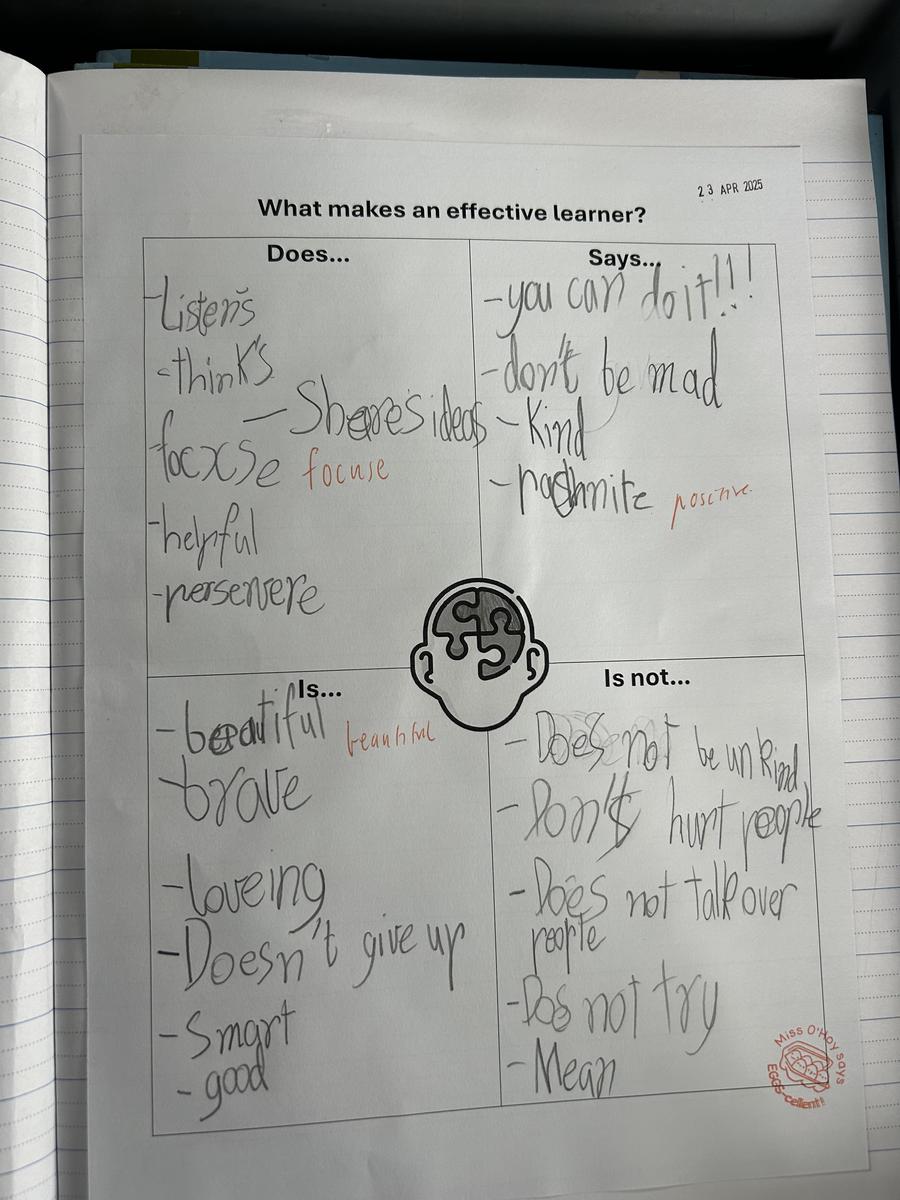 23 APR 2025
What makes an effective learner?
Does...
-Listens
-think's
- Shares ideas
focxse focuse
-helpful
-persevere
Says...
-you can do it!!!
-don't be mad
-Kind
positive
Is...
-beautiful beautiful
-brave
-loveing
-Doesn't give up
-Smart
-good
Is not...
-Does not be unkind
-Don't hurt people
-Does not talk over
people
-Dos not try
-Mean
Miss O'Hoy says
EGGS-cellent!